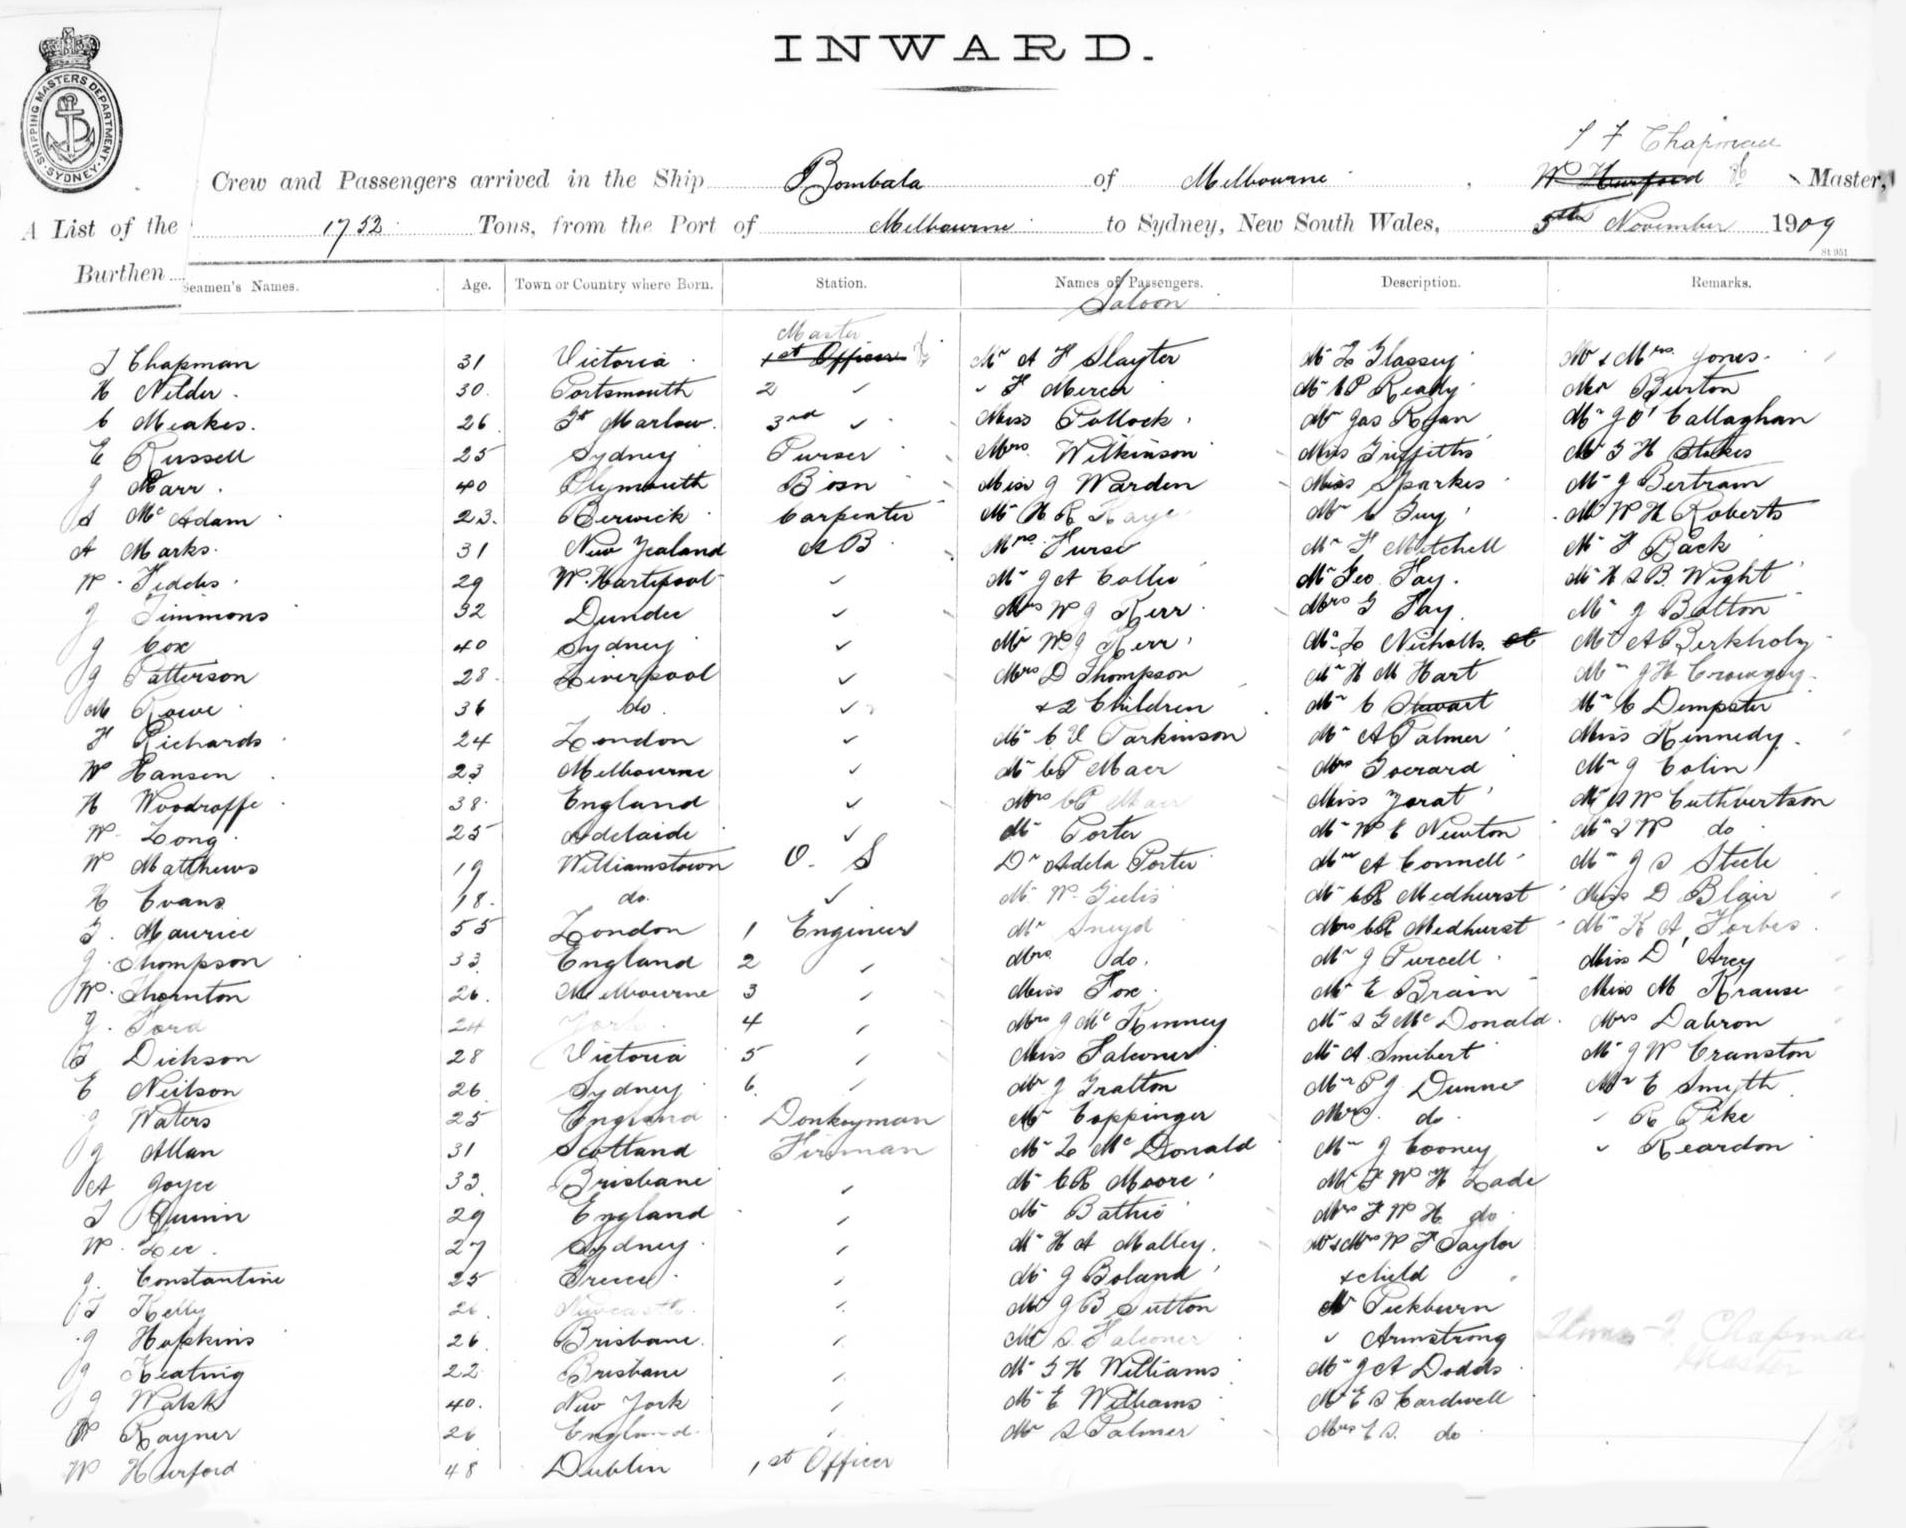 INWARD.
SHIPPING MASTERS DEPARTMENT
SYDNEY
T F Chapman
Crew and Passengers arrived in the Ship Bombala of Melbourne, W Hurford Master,
A List of the
Burthen
1752 Tons, from the Port of Melbourne to Sydney, New South Wales, 5th November 1909
Seamen's Names. Age. Town or Country where Born. Station. Names of Passengers. Description. Remarks.
Saloon
Master
T Chapman 31 Victoria 1st Officer Mr A F Slayter Mr L Glassey Mr & Mrs Jones
H Nilder 30 Portsmouth 2 " F Mercer Mr C P Ready Mr Burton
C Meakes. 26 Gt Marlow. 3rd Miss Pollock Mr Jas Ryan Mr J O'Callaghan
E Russell 25 Sydney Purser Mrs Wilkinson Miss Griffiths Mr G H Stokes
J Marr 40 Plymouth Bosn Miss J Warden Miss Sparkes Mr J Bertram
S McAdam 23 Berwick Carpenter Mr H R Kaye Mr C Guy Mr W H Roberts
A Marks. 31 New Zealand A B Mrs Furse Mr F Mitchell Mr F Back
W. Fiddes 29 W. Hartlpool Mr J A Collie Mr Geo Fay. Mr H S B. Wight
J Timmons 32 Dundee Mrs W J Kerr Mrs G Fay Mr J Bolton
J Cox 40 Sydney Mr W J Kerr Mr L Nicholls Mr A Berkholy
J Patterson 28 Liverpool Mrs D Thompson Mr H M Hart Mr J H
M Rowe 36 do. & 2 Children Mr C Stewart Mr C Dempster
F Richards 24 London Mr C V Parkinson Mr A Palmer Miss Kennedy
W Hansen 23 Melbourne Mr C P Maer Mrs Goerard Mr J Colin
H Woodroffe 38 England Mrs C P Maer Miss Zerat Mr S W Cuthbertson
W Long 25 Adelaide Mr Porter Mr W E Newton Mr S W do
W Matthews 19 Williamstown O. S Dr Adela Porter Mr A Connell Mr J S Steele
H Evans 18. do. Mr W. Gielis Mr C R Medhurst Miss D Blair
G. Maurice 55 London 1 Engineer Mr Sneyd Mrs C R Medhurst Mr K A Forbes
J Thompson 33 England 2 Mrs do. Mr J Purcell Miss D'Arcy
W. Thornton 26 Melbourne 3 Miss Fox Mr E Brain Miss M Krause
J. Ford 24 York 4 Mrs J McKinney Mr S G McDonald Mrs Dabron
T Dickson 28 Victoria 5 Miss Falconer Mr A. Smibert Mr J W Cranston
E Neilson 26 Sydney 6 Mr J Gratton Mr P J Dunne Mr E Smyth
J Waters 25 England Donkeyman Mr Coppinger Mrs. do " R Pike
J Allan 31 Scotland Firman Mr L McDonald Mr J Cooney " Reardon
A Joyce 33 Brisbane Mr C R Moore Mr F W H Lade
T Quinn 29 England Mr Bathie Mrs F W H do
W. Lee 27 Sydney Mr H A Malley Mr & Mrs W F Taylor
J. Constantine 25 Greece Mr J Boland & child
T Kelly 26 Newcastle Mr J B Sutton Mr Pickburn
J Hopkins 26 Brisbane. Mr S Falconer " Armstrong
J Keating 22 Brisbane Mr G H Williams Mr J A Dodds
J Walsh 40. New York Mr E Williams Mr E S Cardwell
W Rayner 26 England Mr S Palmer Mrs E S. do
W Hurford 48 Dublin 1st Officer
Chapman
Master